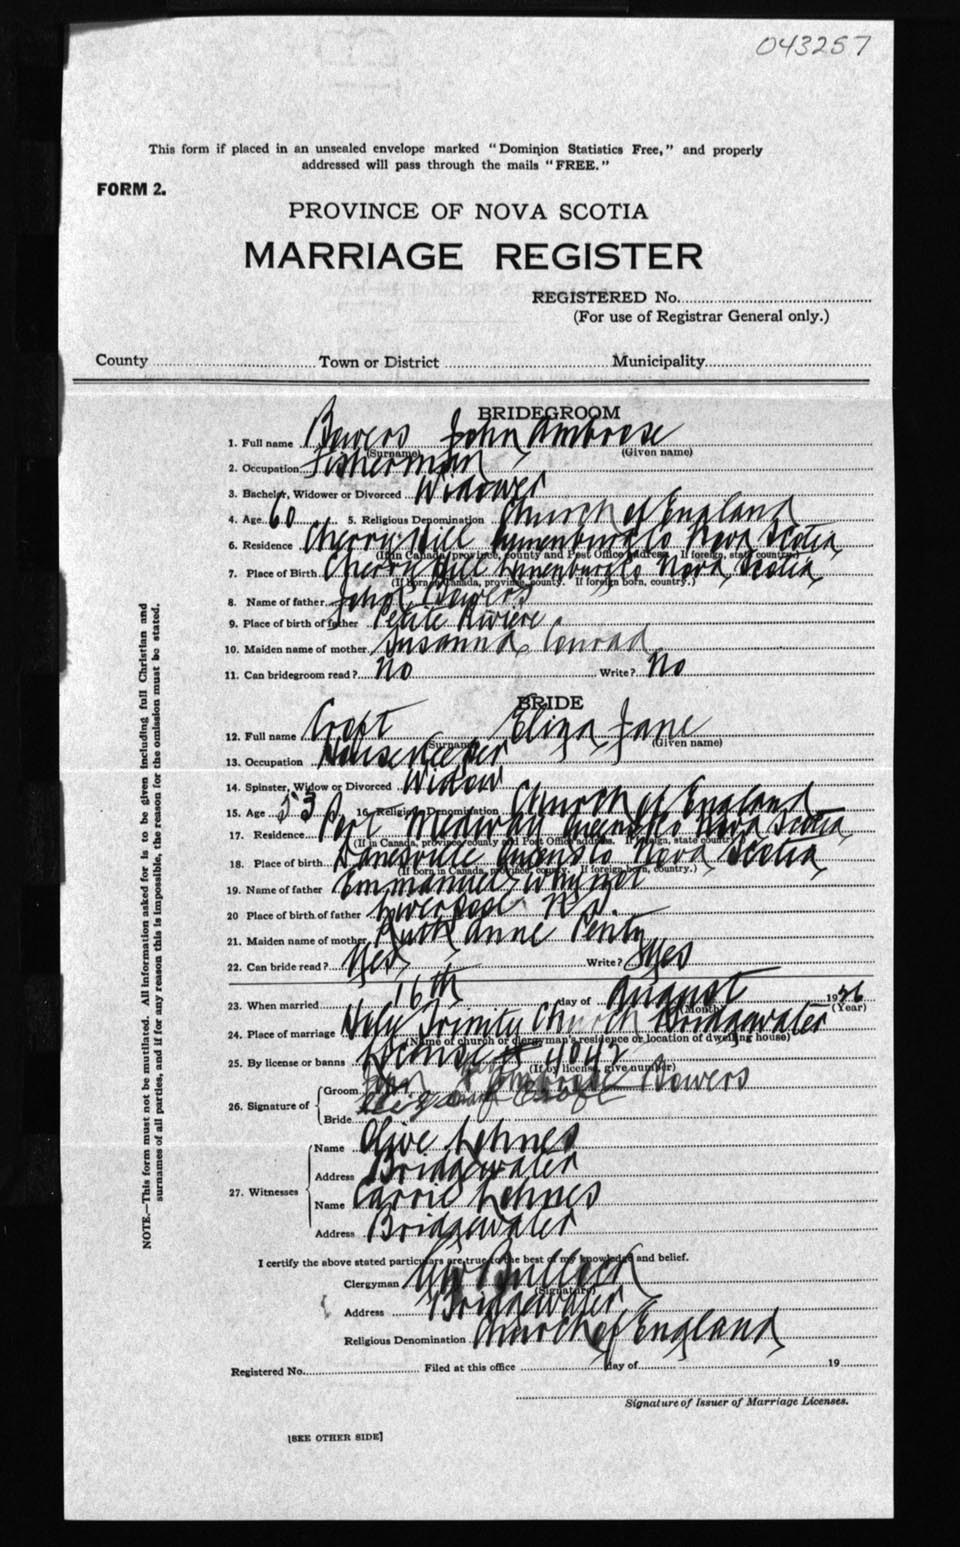 043257
This form if placed in an unsealed envelope marked "Dominion Statistics Free," and properly
addressed will pass through the mails "FREE."
FORM 2.
PROVINCE OF NOVA SCOTIA
MARRIAGE REGISTER
REGISTERED No.
(For use of Registrar General only.)
County Town or District Municipality
BRIDEGROOM
1. Full name Bowers John Ambrose
(Surname) (Given name)
2. Occupation Fisherman
3. Bachelor, Widower or Divorced Widower
4. Age 60 5. Religious Denomination Church of England
6. Residence Cherry Hill Lunenburg Co Nova Scotia
(If in Canada, province, county and Post Office address. If foreign, state country.)
7. Place of Birth Cherry Hill Lunenburg Co Nova Scotia
(If born in Canada, province, county. If foreign born, country.)
8. Name of father John Bowers
9. Place of birth of father Petite Riviere
10. Maiden name of mother Susanna Conrad
11. Can bridegroom read? No Write? No
BRIDE
12. Full name Croft Eliza Jane
(Surname) (Given name)
13. Occupation Housekeeper
14. Spinster, Widow or Divorced Widow
15. Age 53 16. Religious Denomination Church of England
17. Residence Port Medway Queens Co Nova Scotia
(If in Canada, province, county and Post Office address. If foreign, state country.)
18. Place of birth Danesville Queens Co Nova Scotia
(If born in Canada, province, county. If foreign born, country.)
19. Name of father Emmanuel Whynot
20 Place of birth of father Liverpool N S
21. Maiden name of mother Ruth Anne
22. Can bride read? Yes Write? Yes
23. When married 16th day of August 1926
(Month) (Year)
24. Place of marriage Holy Trinity Church Bridgewater
(Name of church or clergyman's residence or location of dwelling house)
25. By license or banns License # 4042
(If by license, give number)
26. Signature of Groom John Bowers
Bride Croft
27. Witnesses
Name Olive Lohnes
Address Bridgewater
Name Carrie Lohnes
Address Bridgewater
I certify the above stated particulars are true to the best of my knowledge and belief.
Clergyman Bullock
(Signature)
Address Bridgewater
Religious Denomination Church of England
Registered No. Filed at this office day of 19
Signature of Issuer of Marriage Licenses.
[SEE OTHER SIDE]
NOTE.—This form must not be mutilated. All information asked for is to be given including full Christian and
surnames of all parties, and if for any reason this is impossible, the reason for the omission must be stated.